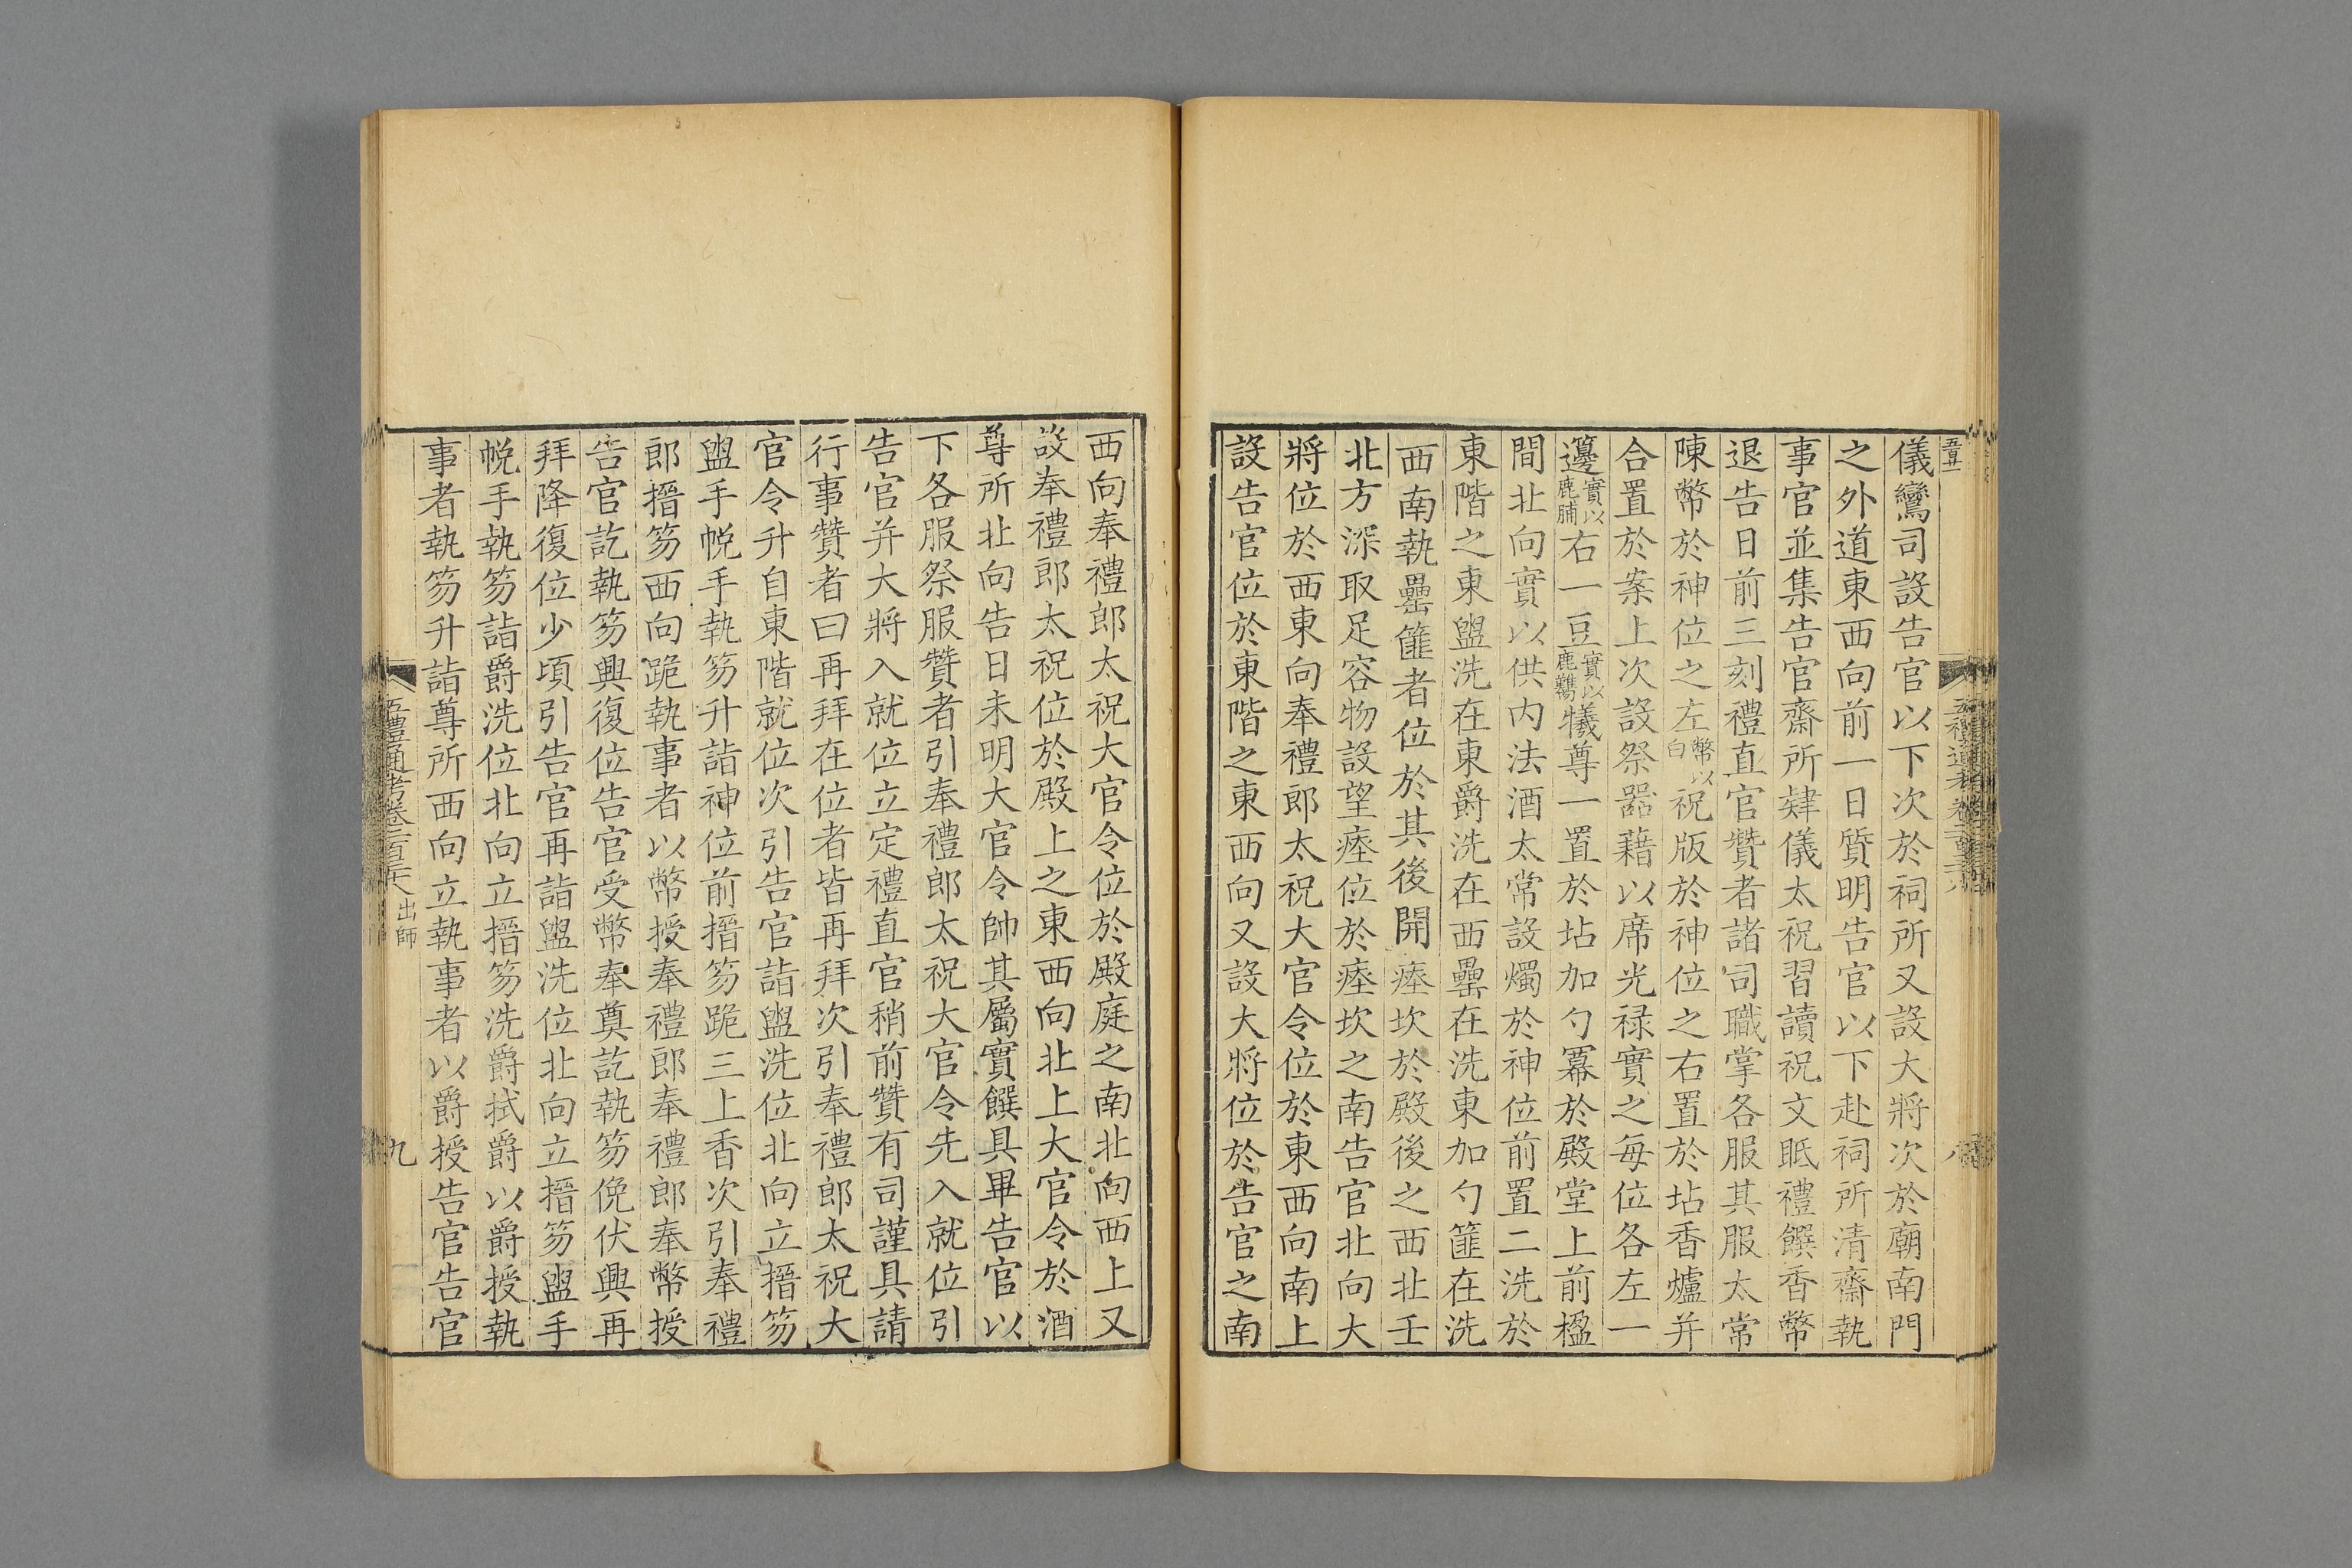 儀鸞司設告官以下次於祠所又設大將次於廟南門
之外道東西向前一日質明告官以下赴祠所清齋執
事官並集告官齋所肄儀太祝習讀祝文眡禮饌香幣
退告日前三刻禮直官贊者諸司職掌各服其服太常
陳幣於神位之左幣以白祝版於神位之右置於坫香爐并
合置於案上次設祭器藉以席光禄實之每位各左一
籩實以鹿脯右一豆實以鹿䴢犧尊一置於坫加勺冪於殿堂上前楹
間北向實以供内法酒太常設燭於神位前置二洗於
東階之東盥洗在東爵洗在西罍在洗東加勺篚在洗
西南執罍篚者位於其後開瘞坎於殿後之西北壬
北方深取足容物設望瘞位於瘞坎之南告官北向大
將位於西東向奉禮郎太祝大官令位於東西向南上
設告官位於東階之東西向又設大將位於告官之南
西向奉禮郎太祝大官令位於殿庭之南北向西上又
設奉禮郎太祝位於殿上之東西向北上大官令於酒
尊所北向告日未明大官令帥其屬實饌具畢告官以
下各服祭服贊者引奉禮郎太祝大官令先入就位引
告官并大將入就位立定禮直官稍前贊有司謹具請
行事贊者曰再拜在位者皆再拜次引奉禮郎太祝大
官令升自東階就位次引告官詣盥洗位北向立搢笏
盥手帨手執笏升詣神位前搢笏跪三上香次引奉禮
郎搢笏西向跪執事者以幣授奉禮郎奉禮郎奉幣授
告官訖執笏興復位告官受幣奉奠訖執笏俛伏興再
拜降復位少頃引告官再詣盥洗位北向立搢笏盥手
帨手執笏詣爵洗位北向立搢笏洗爵拭爵以爵授執
事者執笏升詣尊所西向立執事者以爵授告官告官
五禮通考卷二百三十八 出師
九